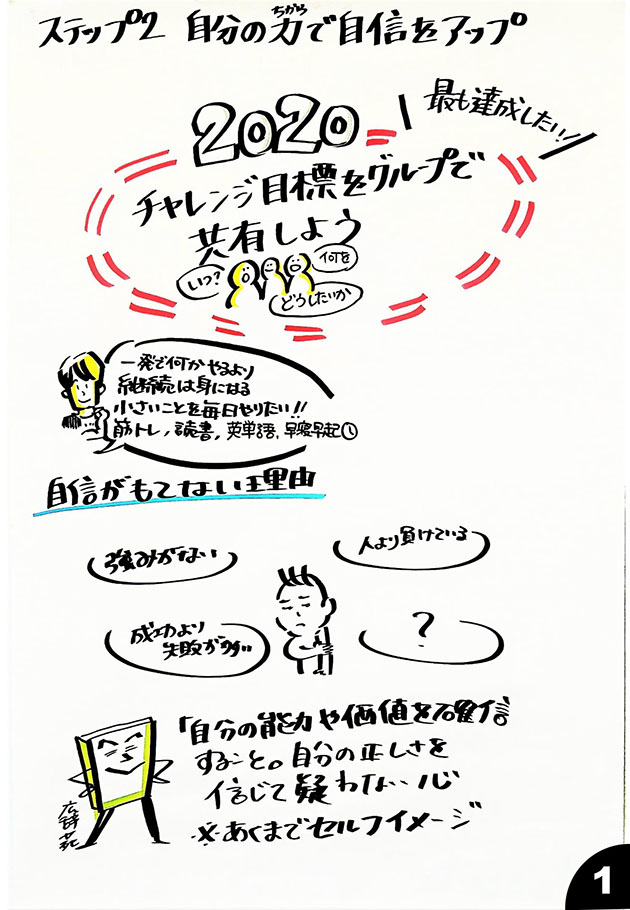 ステップ2 自分の力で自信をアップ
ちから
最も達成したい!
2020
チャレンジ目標をグループで
共有しよう
いつ?
何を
どうしたいか
一発で何かやるより
継続は身になる
小さいことを毎日やりたい!!
筋トレ, 読書, 英単語, 早寝早起
自信がもてない理由
強みがない
人より負けている
成功より
失敗が多い
?
「自分の能力や価値を確信
すること。自分の正しさを
信じて疑わない心
※あくまでセルフイメージ
広辞苑
1